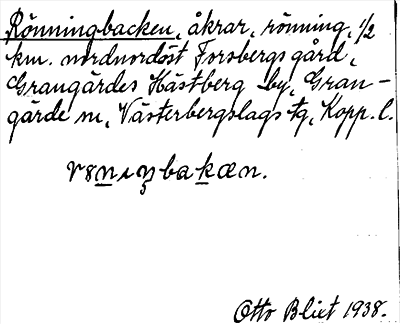 Rönningbacken, åkrar, rönning, 1/2
km. nordnordöst Forsbergs gård,
Grangärdes Hästberg by, Gran-
gärde sn, Västerbergslags tg, Kopp. l.
rönıŋbakæn.
Otto Blixt 1938.